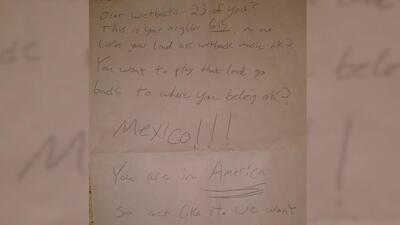 Dear wetbacks. 23 of you?
This is your neighbor 615, no one
likes your loud ass wetback music ok?
You want to play that loud go
back to where you belong ok?
Mexico!!!
You are in America
so act like it. We want